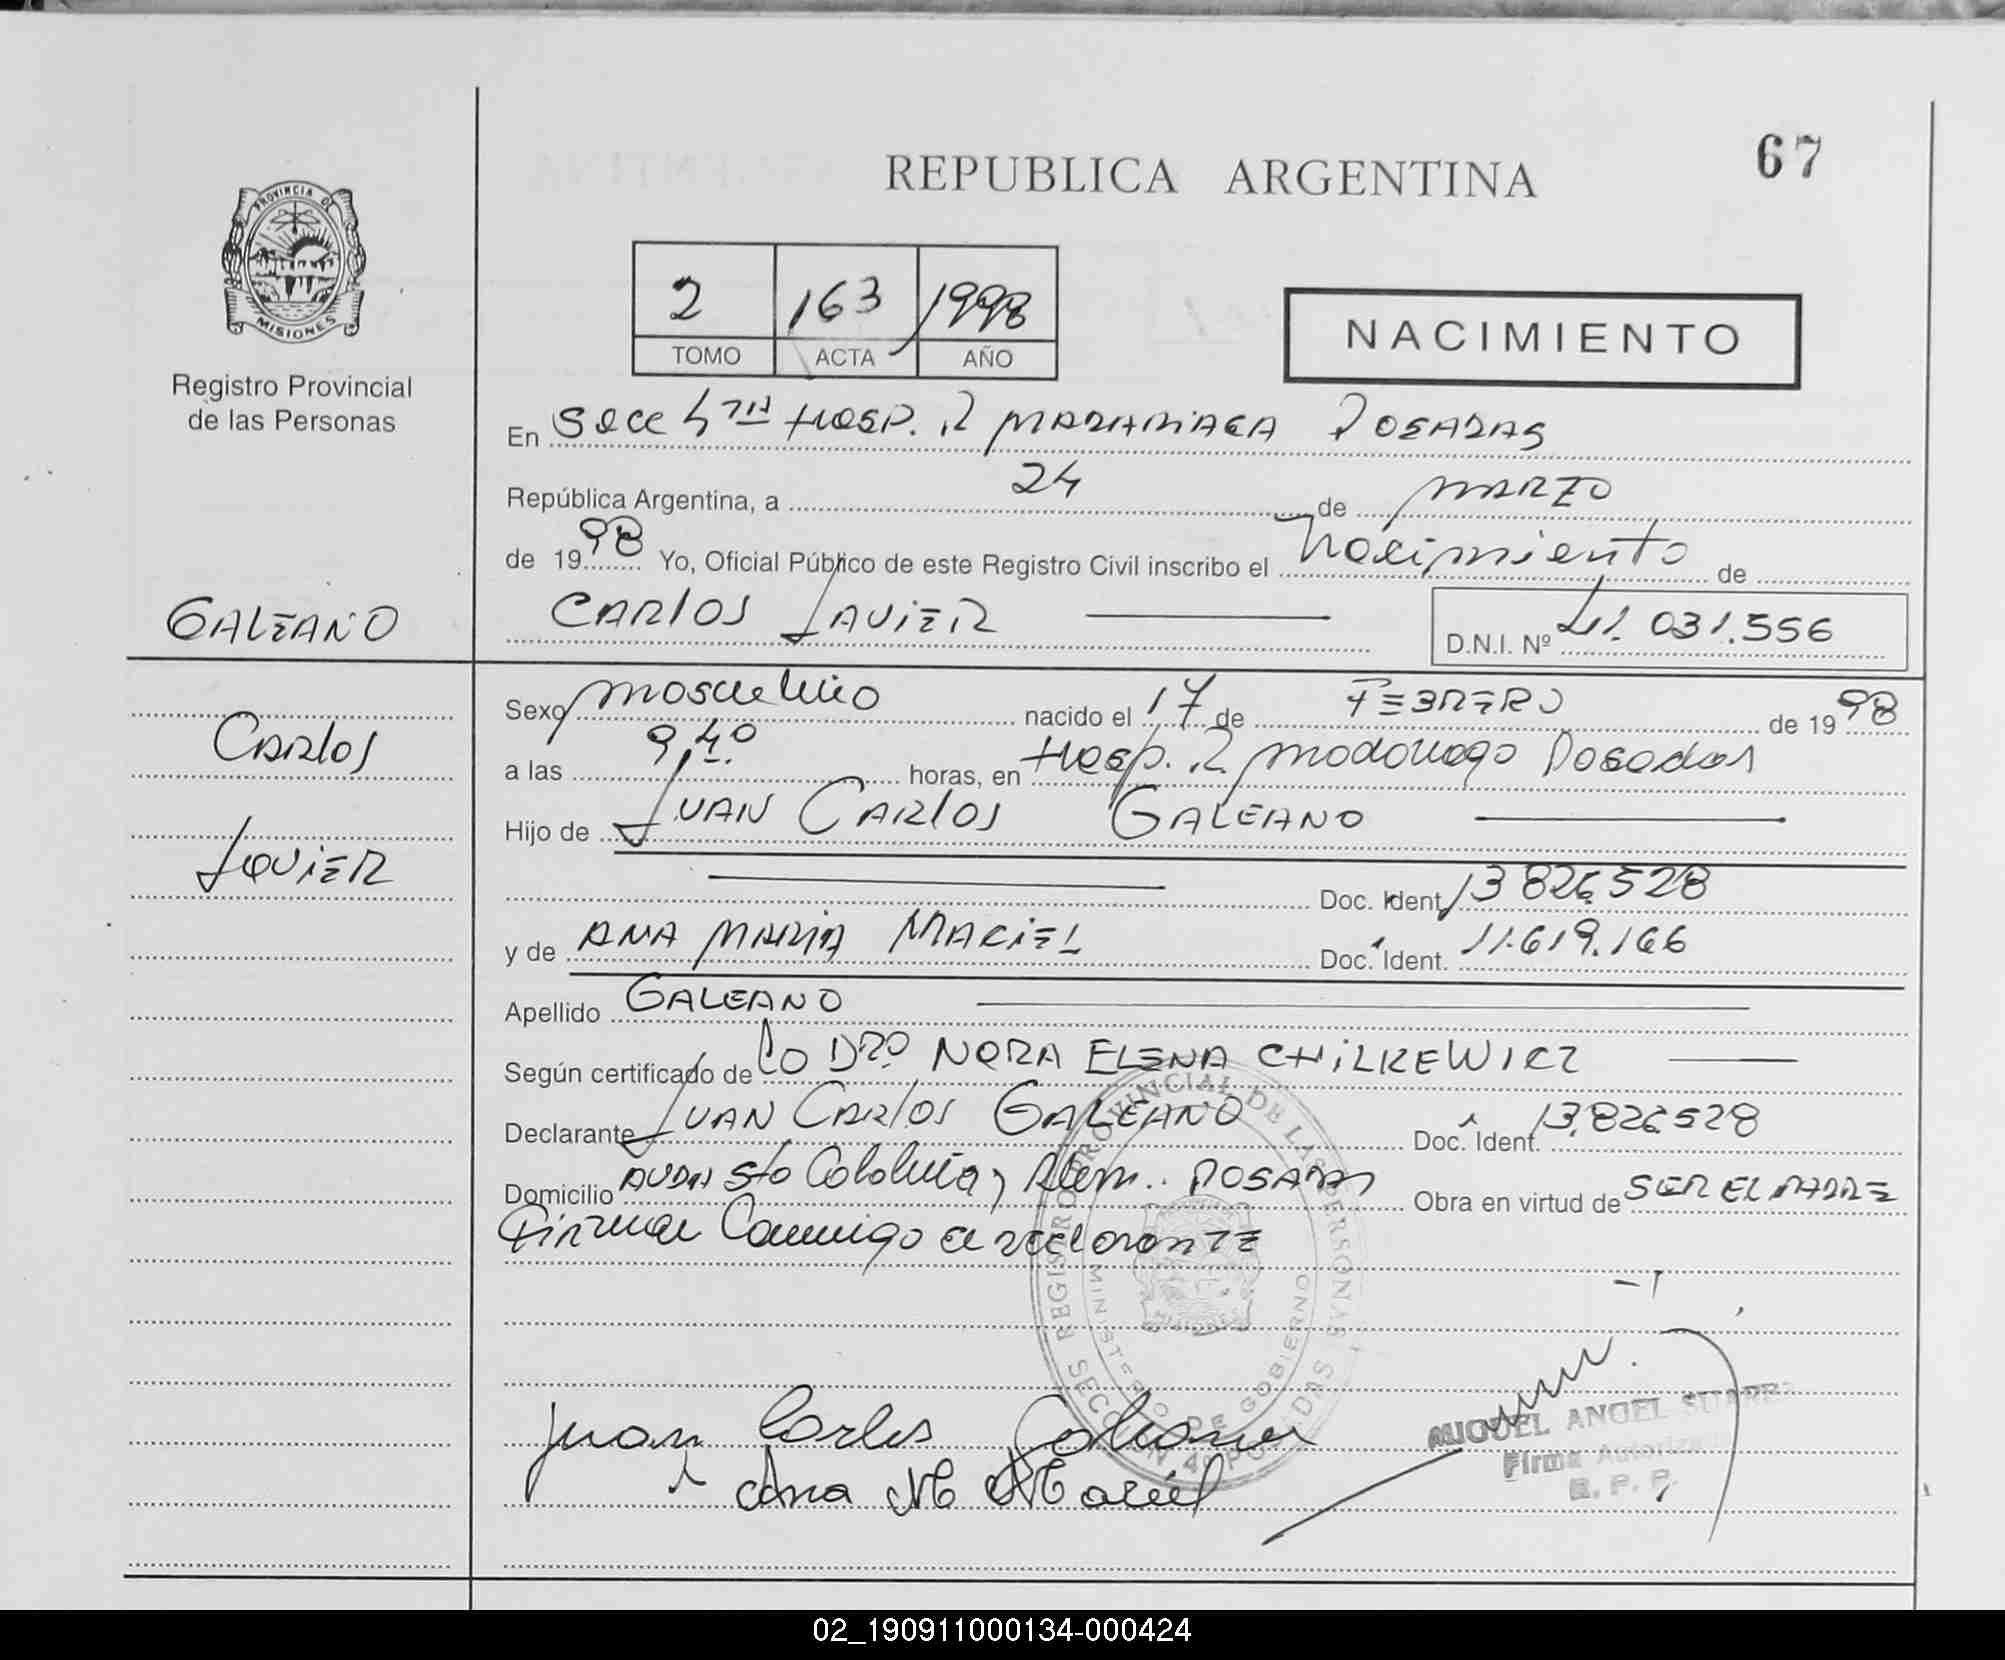 67
REPUBLICA ARGENTINA
PROVINCIA DE
MISIONES
Registro Provincial
de las Personas
2 163 1998
TOMO ACTA AÑO
NACIMIENTO
En Secc 4ta Hosp. R MADARIAGA POSADAS
República Argentina, a 24 de MARZO
de 1998 Yo, Oficial Público de este Registro Civil inscribo el Nacimiento de
GALEANO
CARLOS JAVIER
D.N.I. Nº 41.031.556
Sexo masculino nacido el 17 de FEBRERO de 1998
Carlos
a las 9,40 horas, en Hosp. R madariaga Posadas
Hijo de JUAN CARLOS GALEANO
Javier
Doc. Ident. 13.826.528
y de ANA MARIA MACIEL Doc. Ident. 11.619.166
Apellido GALEANO
Según certificado de la Dra NORA ELENA CHILKEWICZ
Declarante JUAN CARLOS GALEANO Doc. Ident. 13.826.528
Domicilio Sto Alem.. POSADAS Obra en virtud de SER EL PADRE
Firma Conmigo el declarante
REGISTRO PROVINCIAL DE LAS PERSONAS
MINISTERIO DE GOBIERNO
SECCION 4ª POSADAS
Juan Carlos Galeano
Ana M Maciel
MIGUEL ANGEL SUAREZ
Firma Autorizada
R. P. P.
02_190911000134-000424